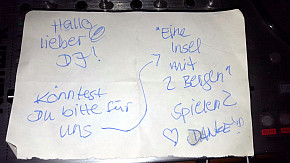 Hallo
lieber
DJ!
Könntest
Du bitte für
uns
"Eine
Insel
mit
2 Bergen"
Spielen?
♡ DANKE!!!